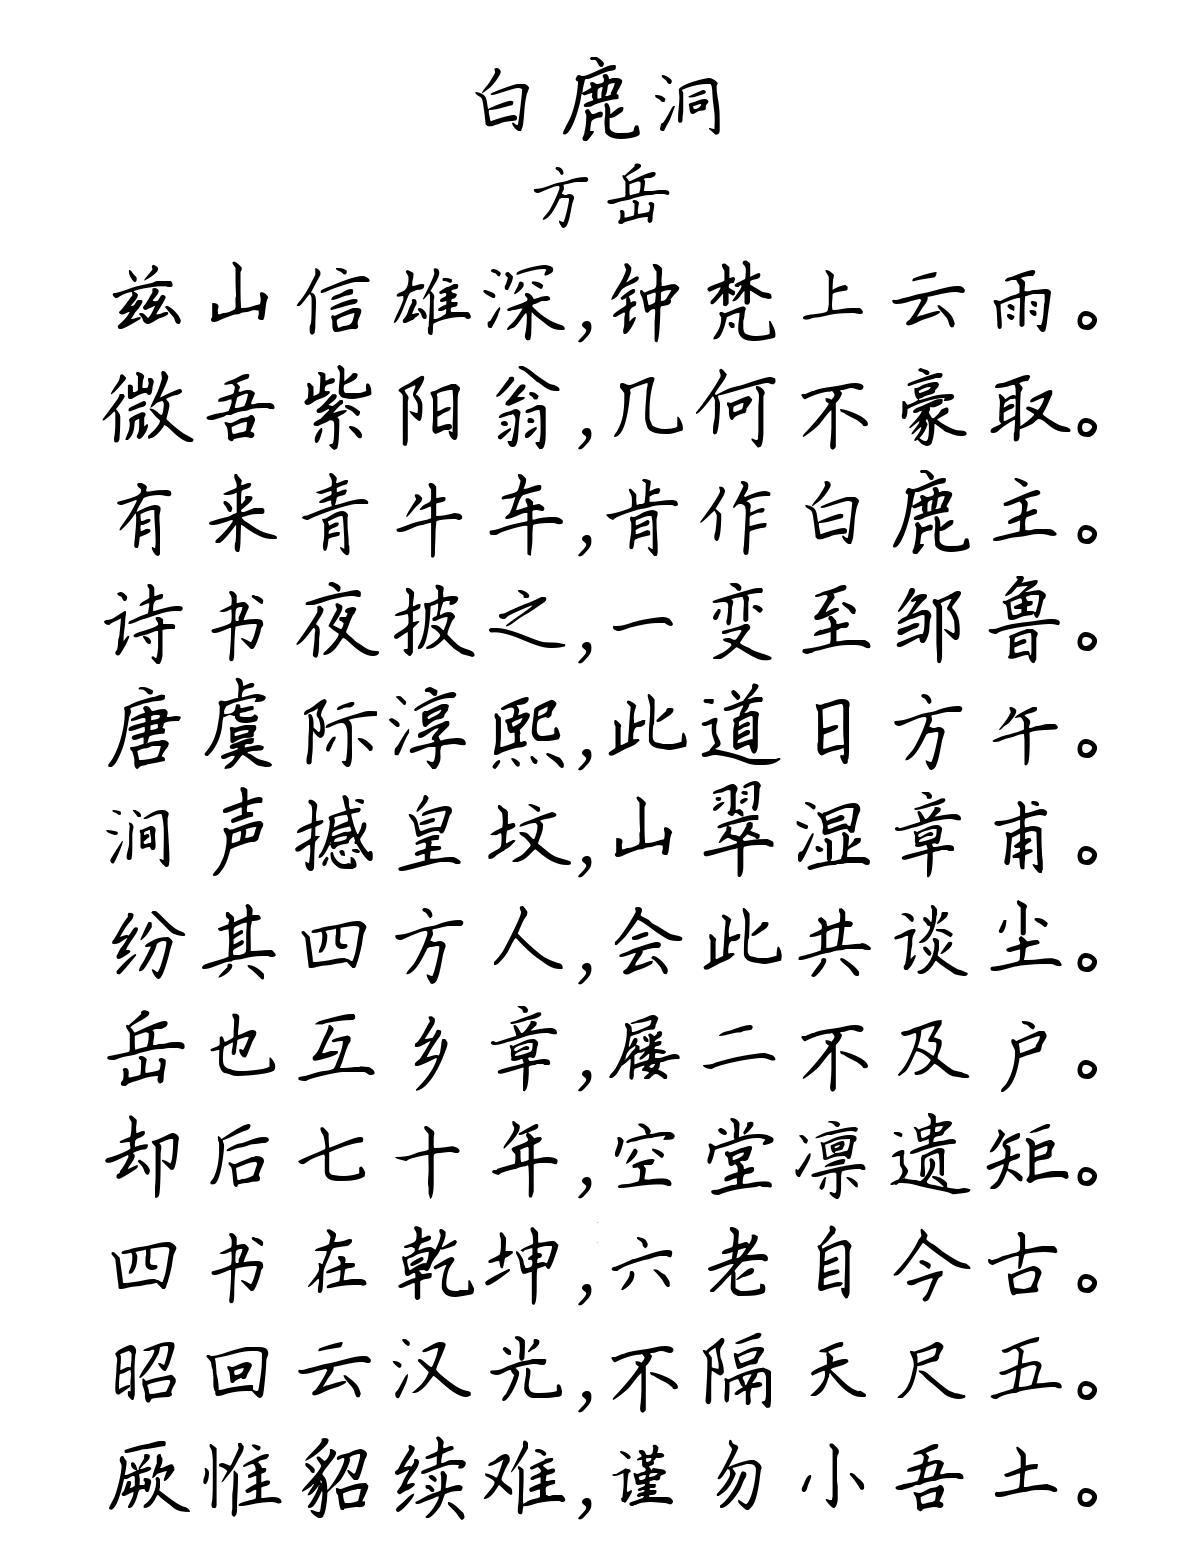 白鹿洞
方岳
兹山信雄深,钟梵上云雨。
微吾紫阳翁,几何不豪取。
有来青牛车,肯作白鹿主。
诗书夜披之,一变至邹鲁。
唐虞际淳熙,此道日方午。
涧声撼皇坟,山翠湿章甫。
纷其四方人,会此共谈尘。
岳也互乡章,屦二不及户。
却后七十年,空堂凛遗矩。
四书在乾坤,六老自今古。
昭回云汉光,不隔天尺五。
厥惟貂续难,谨勿小吾土。